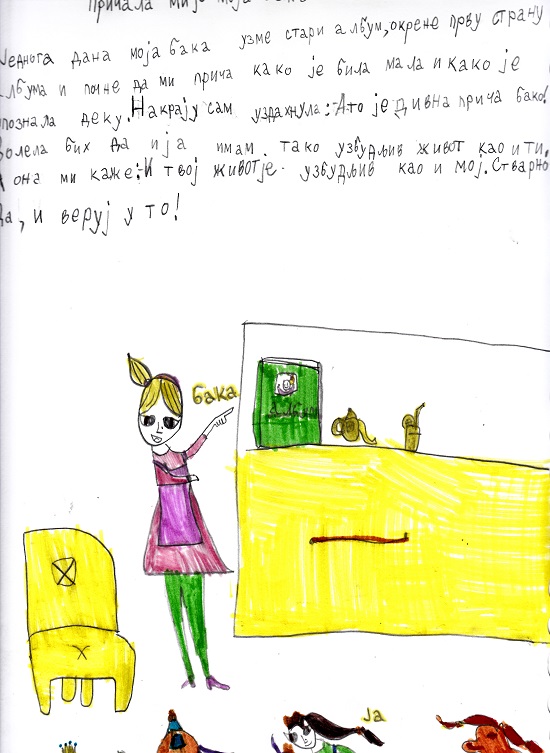 Причала ми је моја
Једнога дана моја бака узме стари албум, окрене прву страну
албума и почне да ми прича како је била мала и како је
упознала деку. На крају сам уздахнула:- А то је дивна прича бако!
Волела бих да и ја имам тако узбудљив живот као и ти.
А она ми каже:- И твој живот је узбудљив као и мој. Стварно
да, и веруј у то!
бака
ја